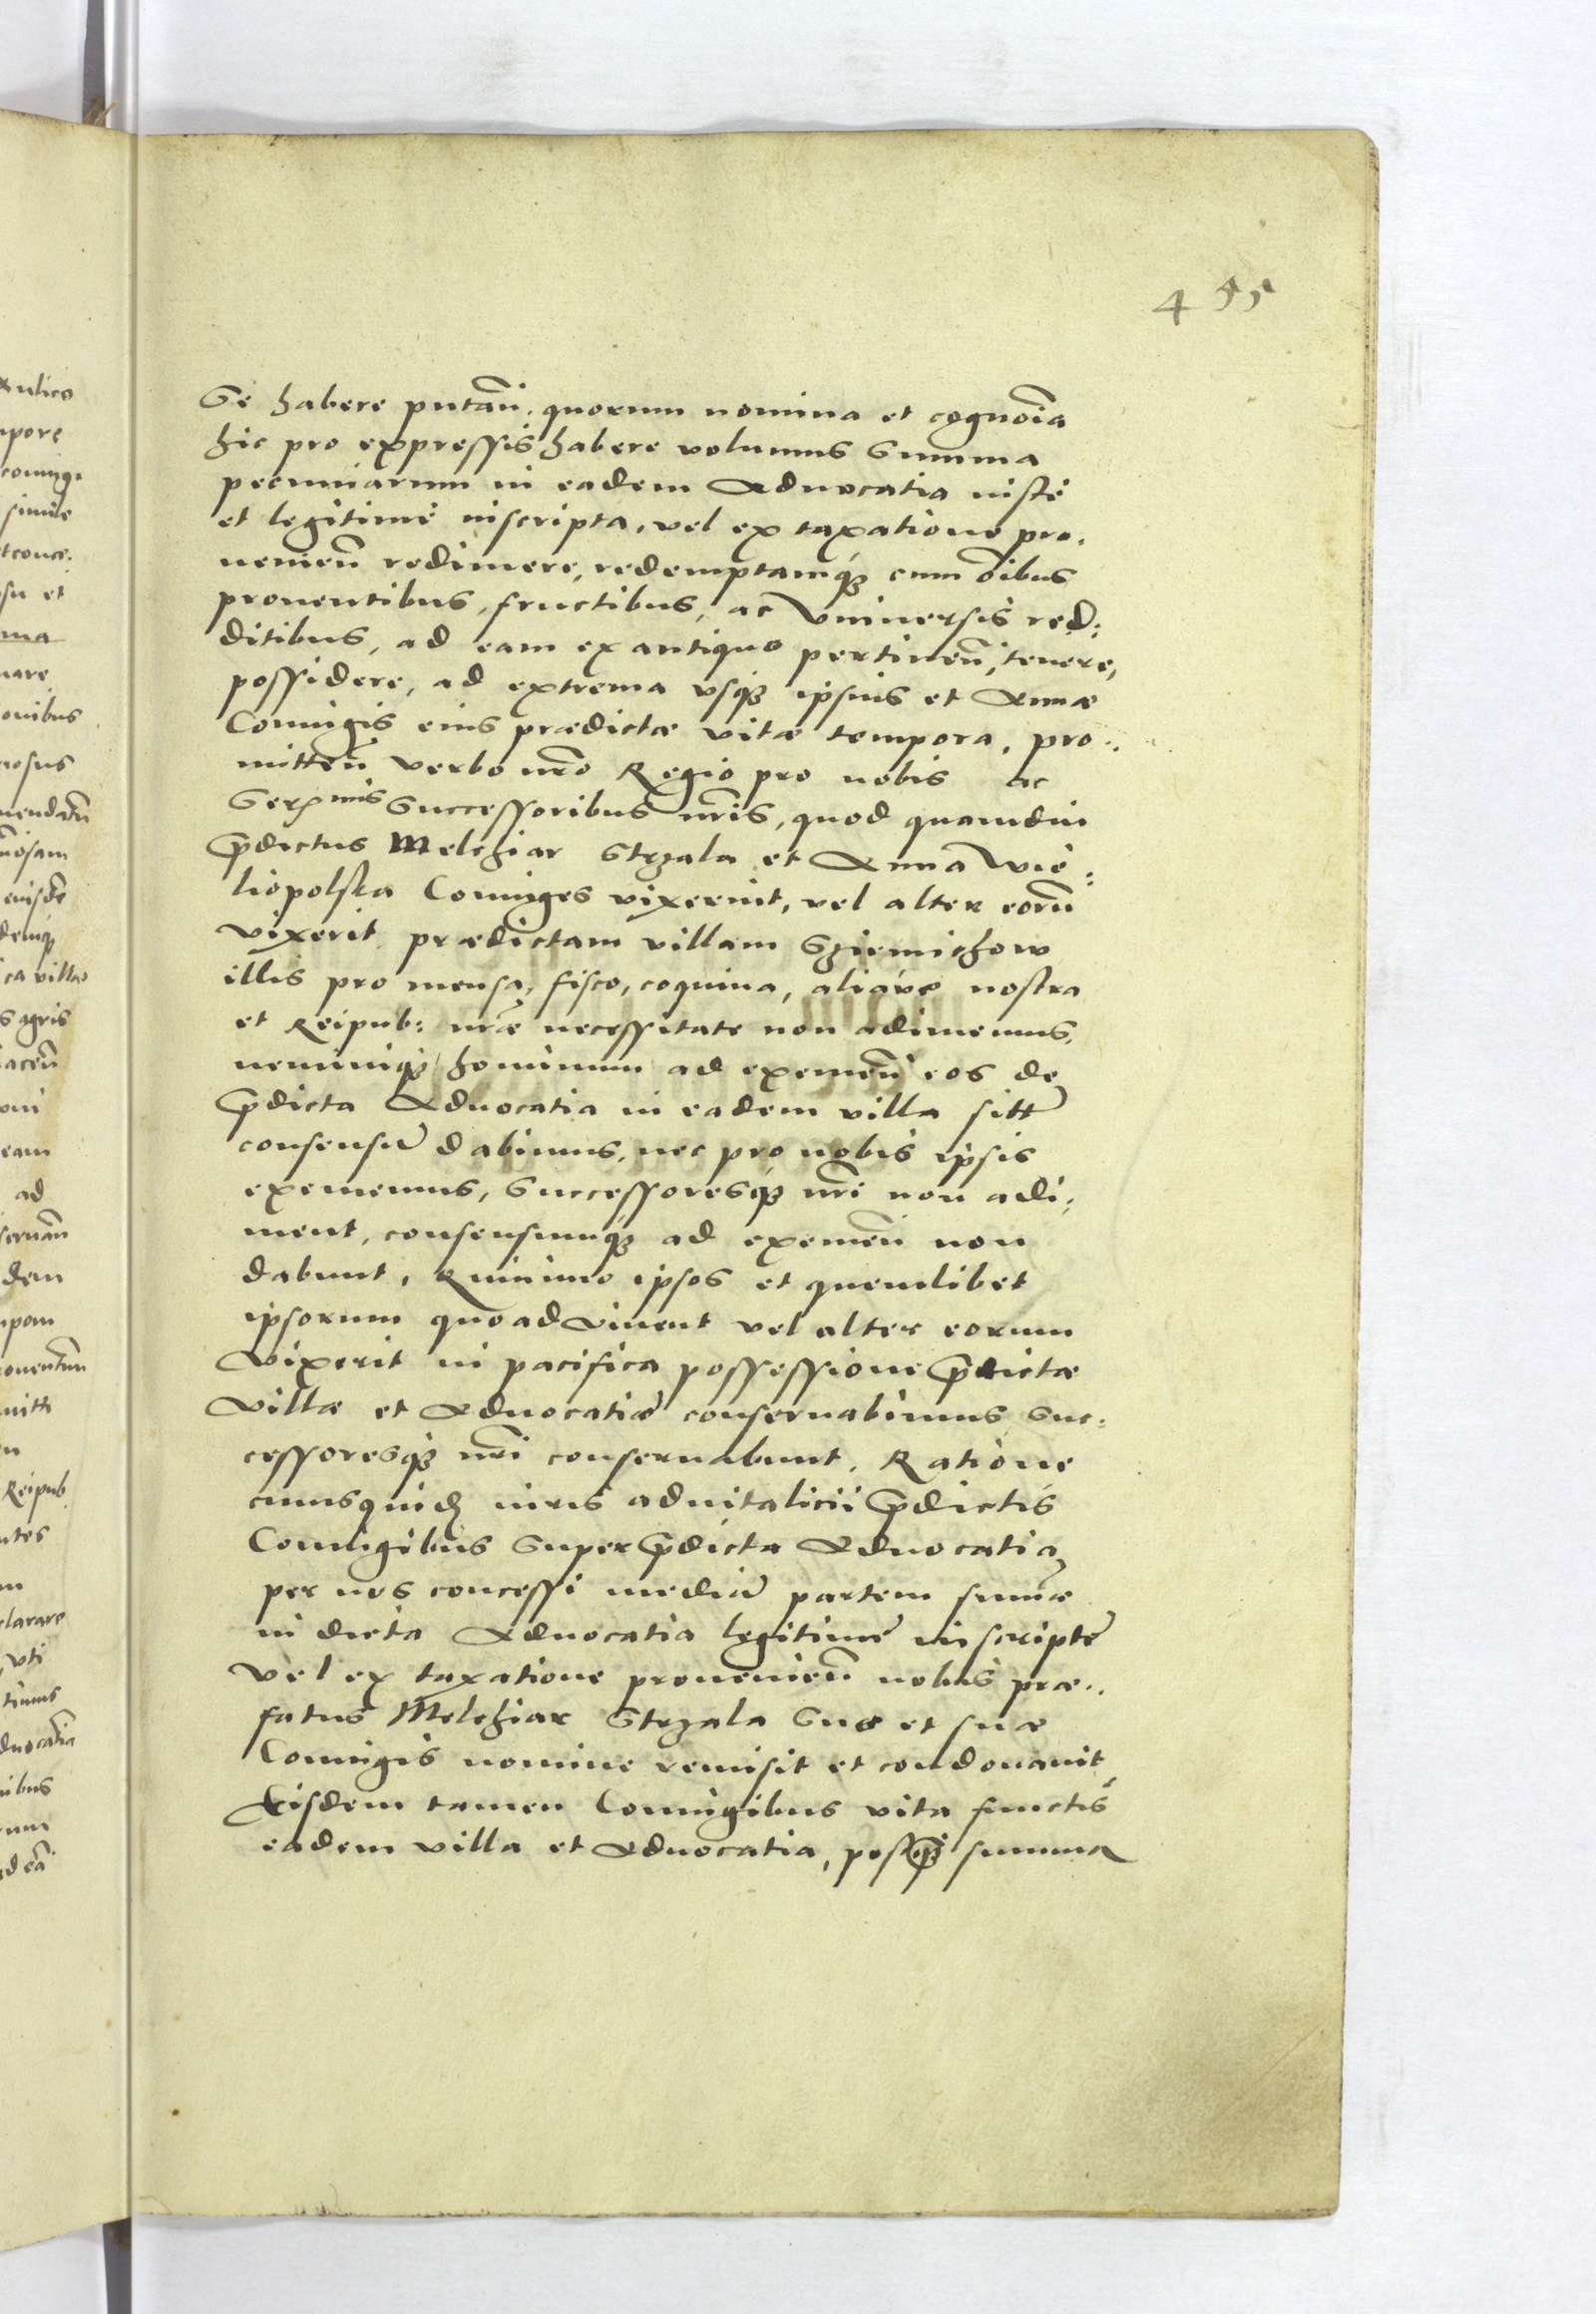 455
Se habere putañ. quorum nomina et cognoĩa
hic pro expressis habere volumus summa
pecuniarum in eadem Aduocatia iuste
et legitime inscripta, vel ex taxatione pro:
ueneñ redimere, redemptamqȝ cum oĩbus
prouentibus, fructibus, ac vniuersis red:
ditibus, ad eam ex antiquo pertineñ, tenere,
possidere, ad extrema vsqȝ ipsius et Annæ
Coniugis eius prædictæ vitæ tempora, pro:
mitteñ verbo nr̃o Regio pro nobis ac
Ser[mis] Successoribus nr̃is, quod quamdiu
p̃dictus Melchiar Strzala et Anna Wie:
liopolska Coniuges vixerint, vel alter eorũ
vixerit prædictam villam Sziemichow
illis pro mensa, fisco, coquina, aliaue nostra
et Reipub: nr̃æ necessitate non adimemus,
neminiqȝ hominum ad eximeñ eos de
p̃dicta Aduocatia in eadem villa sitt̃
consensũ dabimus, nec pro nobis ipsis
eximemus, Successoresqȝ nr̃i non adi:
ment, consensumqȝ ad eximeñ non
dabunt, Quinimo ipsos et quemlibet
ipsorum quoad viuent vel alter eorum
vixerit in pacifica possessione p̃dictæ
villæ et Aduocatiæ conseruabimus Suc:
cessoresqȝ nr̃i conseruabunt. Ratione
cuius quidẽ iuris aduitalicii p̃dictis
Coniugibus super p̃dicta Aduocatia
per nos concessi mediã partem sum̃æ
in dicta Aduocatia legitime inscriptæ
vel ex taxatione proueniẽn nobis præ:
fatus Melchiar Strzala suo et suæ
Coniugis nomine remisit et condonauit,
Eisdem tamen Coniugibus vita functis
eadem villa et Aduocatia, postqȝ summa